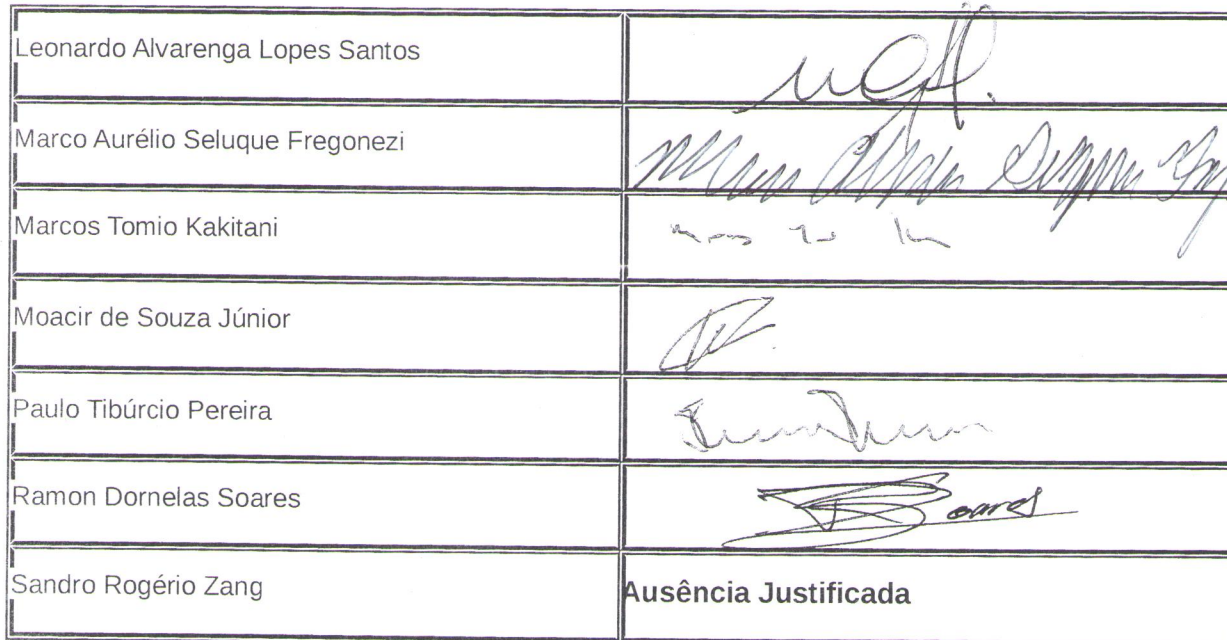 Leonardo Alvarenga Lopes Santos
Marco Aurélio Seluque Fregonezi
Marcos Tomio Kakitani
Moacir de Souza Júnior
Paulo Tibúrcio Pereira
Ramon Dornelas Soares
Soares
Sandro Rogério Zang
Ausência Justificada